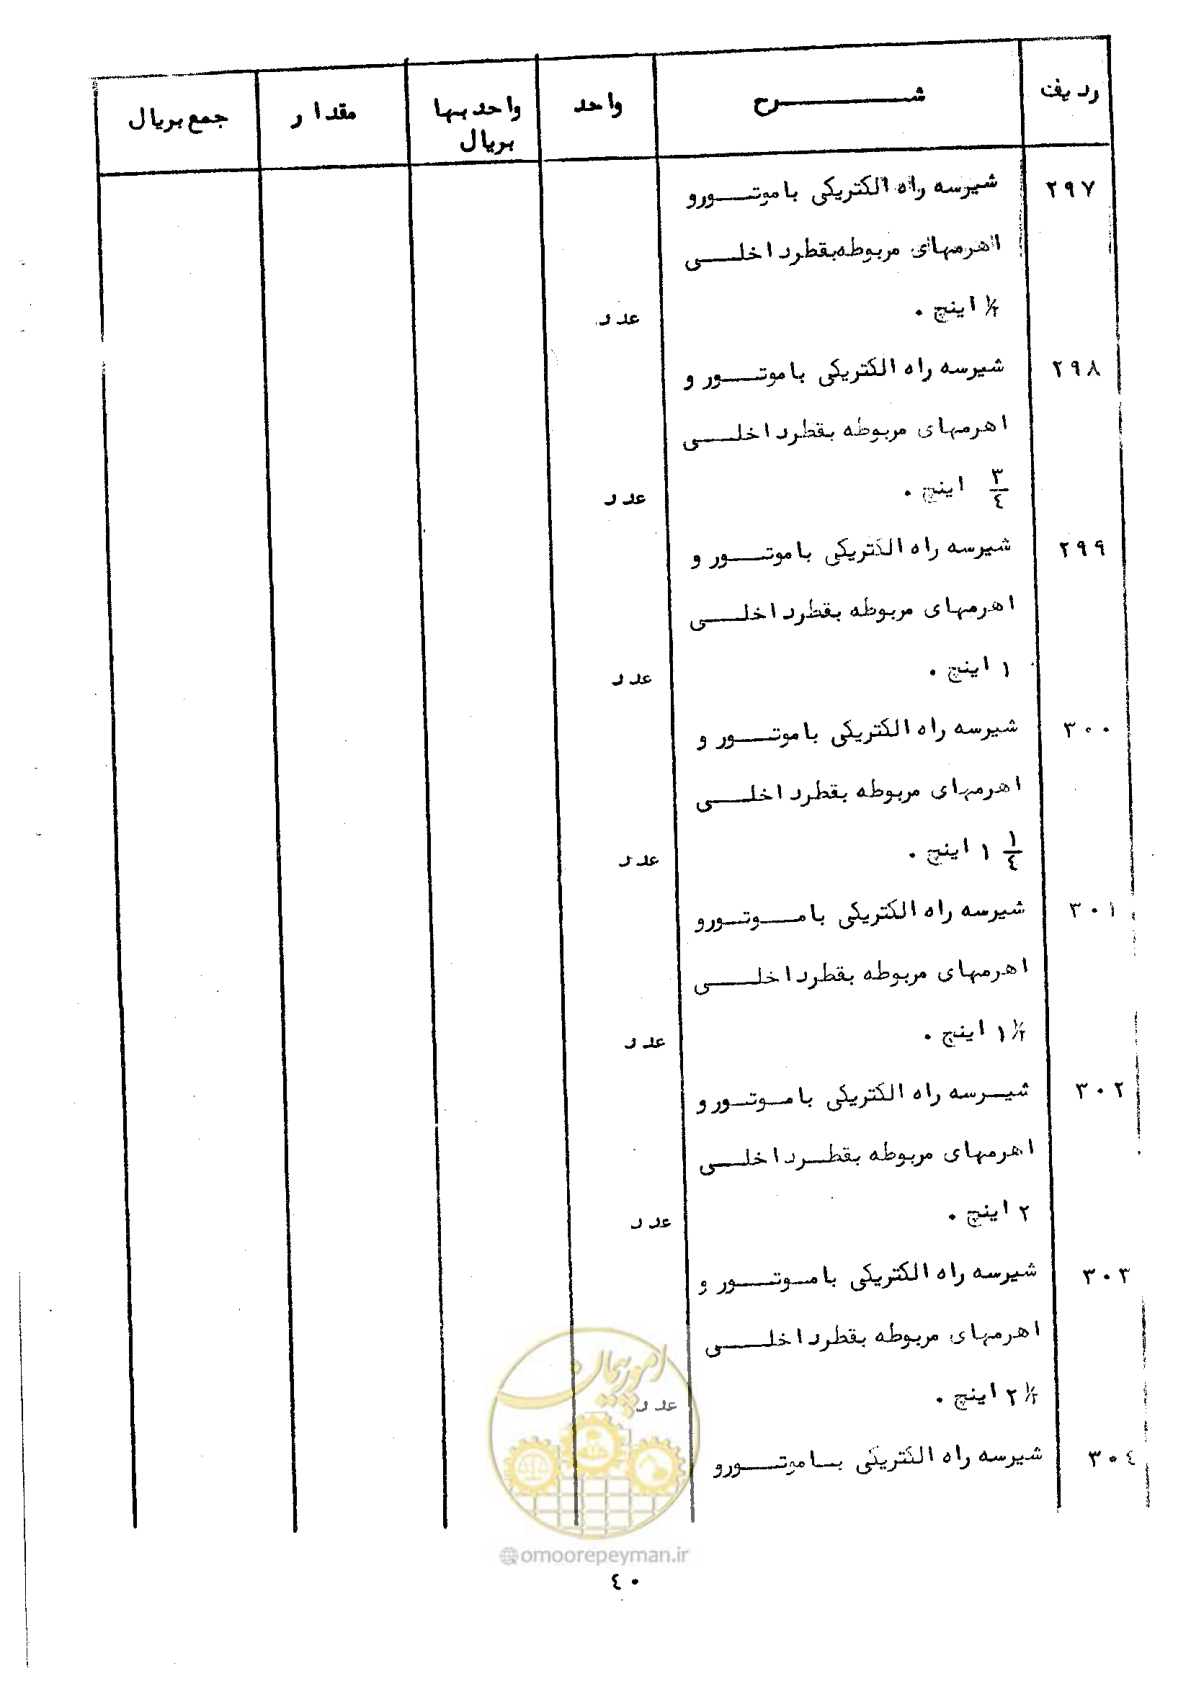 ردیف شرح واحد واحد بها مقدار جمع بریال
بریال
۲۹۷ شیر سه راه الکتریکی با موتور و
اهرمهای مربوطه بقطر داخلی
۱/۲ اینچ . عدد
۲۹۸ شیر سه راه الکتریکی با موتور و
اهرمهای مربوطه بقطر داخلی
۳/٤ اینچ . عدد
۲۹۹ شیر سه راه الکتریکی با موتور و
اهرمهای مربوطه بقطر داخلی
۱ اینچ . عدد
۳۰۰ شیر سه راه الکتریکی با موتور و
اهرمهای مربوطه بقطر داخلی
۱ ۱/٤ اینچ . عدد
۳۰۱ شیر سه راه الکتریکی با موتور و
اهرمهای مربوطه بقطر داخلی
۱ ۱/۲ اینچ . عدد
۳۰۲ شیر سه راه الکتریکی با موتور و
اهرمهای مربوطه بقطر داخلی
۲ اینچ . عدد
۳۰۳ شیر سه راه الکتریکی با موتور و
اهرمهای مربوطه بقطر داخلی
۲ ۱/۲ اینچ . عدد
۳۰٤ شیر سه راه الکتریکی با موتور و
امور پیمان
@omoorepeyman.ir
٤۰